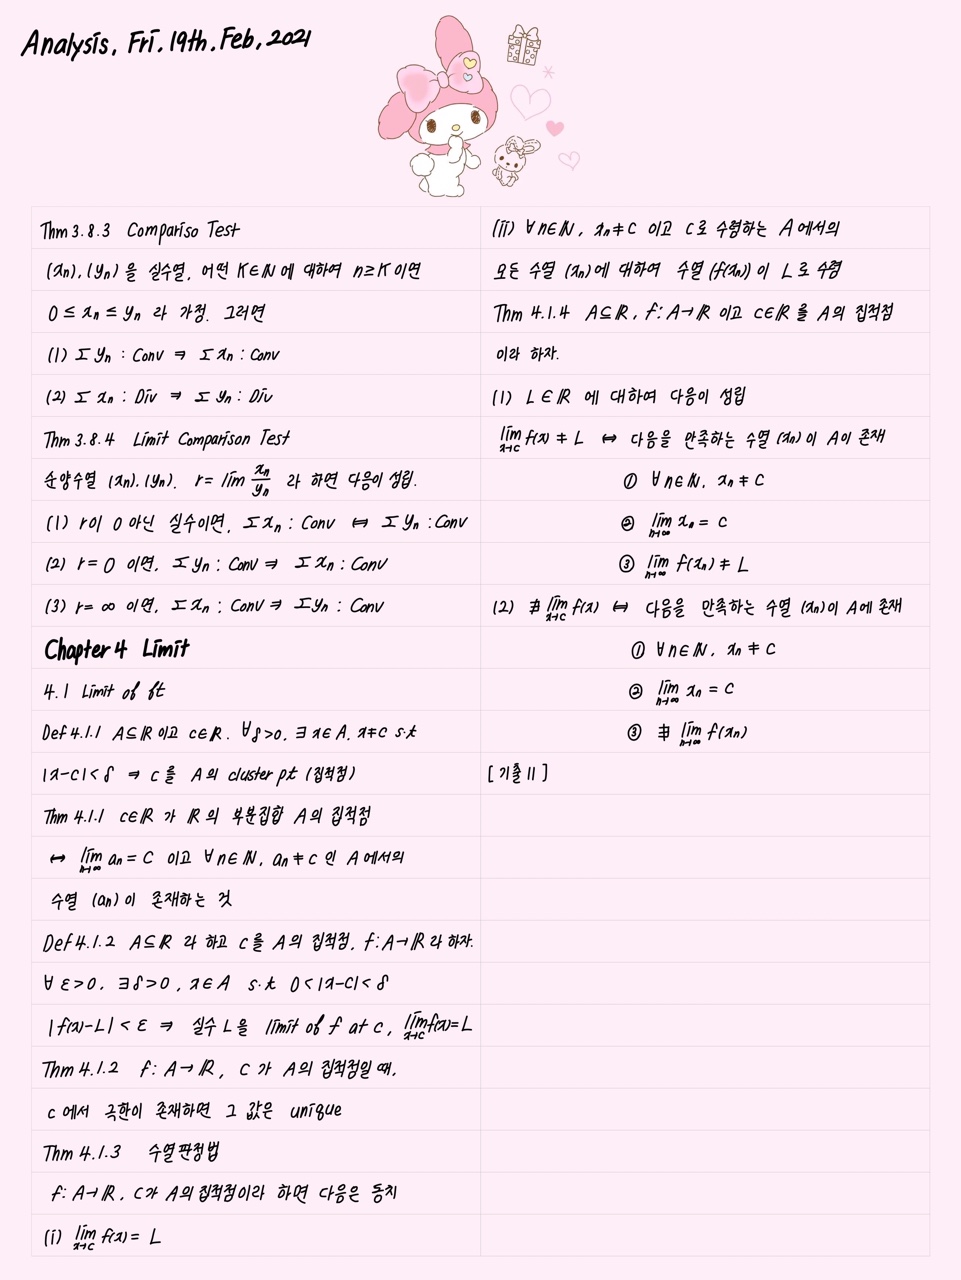 Analysis, Fri. 19th. Feb, 2021
Thm 3.8.3 Compariso Test
(xₙ), (yₙ) 을 실수열, 어떤 K∈ℕ에 대하여 n≥K이면
0 ≤ xₙ ≤ yₙ 라 가정. 그러면
(1) Σ yₙ : Conv ⇒ Σ xₙ : Conv
(2) Σ xₙ : Div ⇒ Σ yₙ : Div
Thm 3.8.4 Limit Comparison Test
순양수열 (xₙ), (yₙ). r = lim xₙ/yₙ 라 하면 다음이 성립.
(1) r이 0 아닌 실수이면, Σ xₙ : Conv ⇔ Σ yₙ : Conv
(2) r = 0 이면, Σ yₙ : Conv ⇒ Σ xₙ : Conv
(3) r = ∞ 이면, Σ xₙ : Conv ⇒ Σ yₙ : Conv
Chapter 4 Limit
4.1 Limit of ft
Def 4.1.1 A⊆ℝ이고 c∈ℝ. ∀δ>0, ∃x∈A, x≠c s.t
|x-c|<δ ⇒ c를 A의 cluster pt (집적점)
Thm 4.1.1 c∈ℝ가 ℝ의 부분집합 A의 집적점
⇔ lim n→∞ aₙ = C 이고 ∀n∈ℕ, aₙ≠c 인 A에서의
수열 (aₙ)이 존재하는 것
Def 4.1.2 A⊆ℝ 라 하고 c를 A의 집적점, f: A→ℝ라 하자.
∀ε>0, ∃δ>0, x∈A s.t 0<|x-c|<δ
|f(x)-L|<ε ⇒ 실수 L을 limit of f at c, lim x→c f(x)=L
Thm 4.1.2 f: A→ℝ, C가 A의 집적점일 때,
c에서 극한이 존재하면 그 값은 unique
Thm 4.1.3 수열판정법
f: A→ℝ, C가 A의 집적점이라 하면 다음은 동치
(i) lim x→c f(x) = L
(ii) ∀n∈ℕ, xₙ≠c 이고 c로 수렴하는 A에서의
모든 수열 (xₙ)에 대하여 수열 (f(xₙ))이 L로 수렴
Thm 4.1.4 A⊆ℝ, f: A→ℝ 이고 c∈ℝ를 A의 집적점
이라 하자.
(1) L∈ℝ에 대하여 다음이 성립
lim x→c f(x) ≠ L ⇔ 다음을 만족하는 수열 (xₙ)이 A이 존재
① ∀n∈ℕ, xₙ≠c
② lim n→∞ xₙ = c
③ lim n→∞ f(xₙ) ≠ L
(2) ∄ lim x→c f(x) ⇔ 다음을 만족하는 수열 (xₙ)이 A에 존재
① ∀n∈ℕ, xₙ≠c
② lim n→∞ xₙ = c
③ ∄ lim n→∞ f(xₙ)
[기출 11]